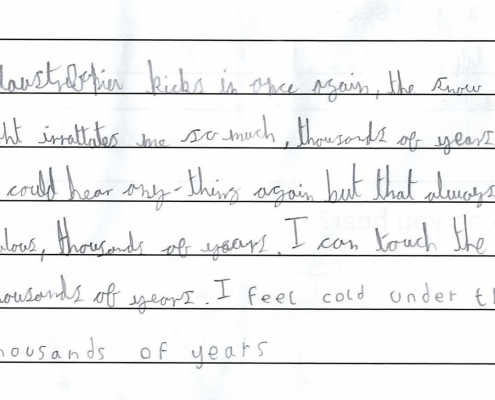 laustrophia kicks in once again, the snow
ht irratates me so much, thousands of years
could hear any-thing again but that always
lous, thousands of years. I can touch the
ousands of years. I feel cold under th
housands of years